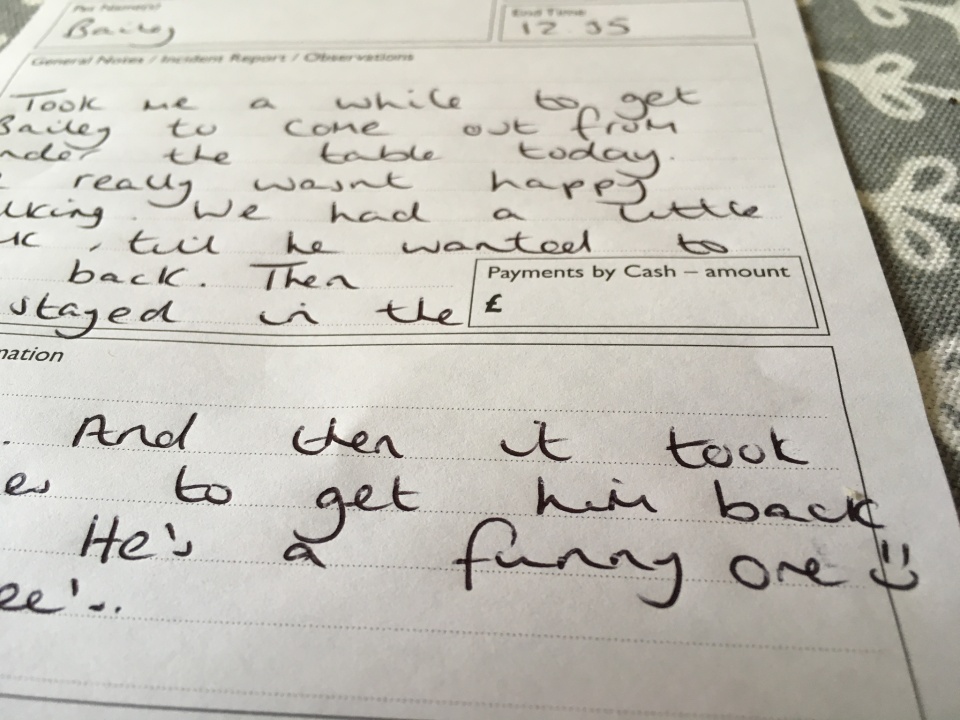 Pet Name(s)
End Time
Bailey
12.35
General Notes / Incident Report / Observations
Took me a while to get
Bailey to come out from
nder the table today.
really wasnt happy
lking. We had a little
, till he wanted to
back. Then
Payments by Cash – amount
£
stayed in the
mation
. And then it took
es to get him back
He's a funny one :)
ee's.